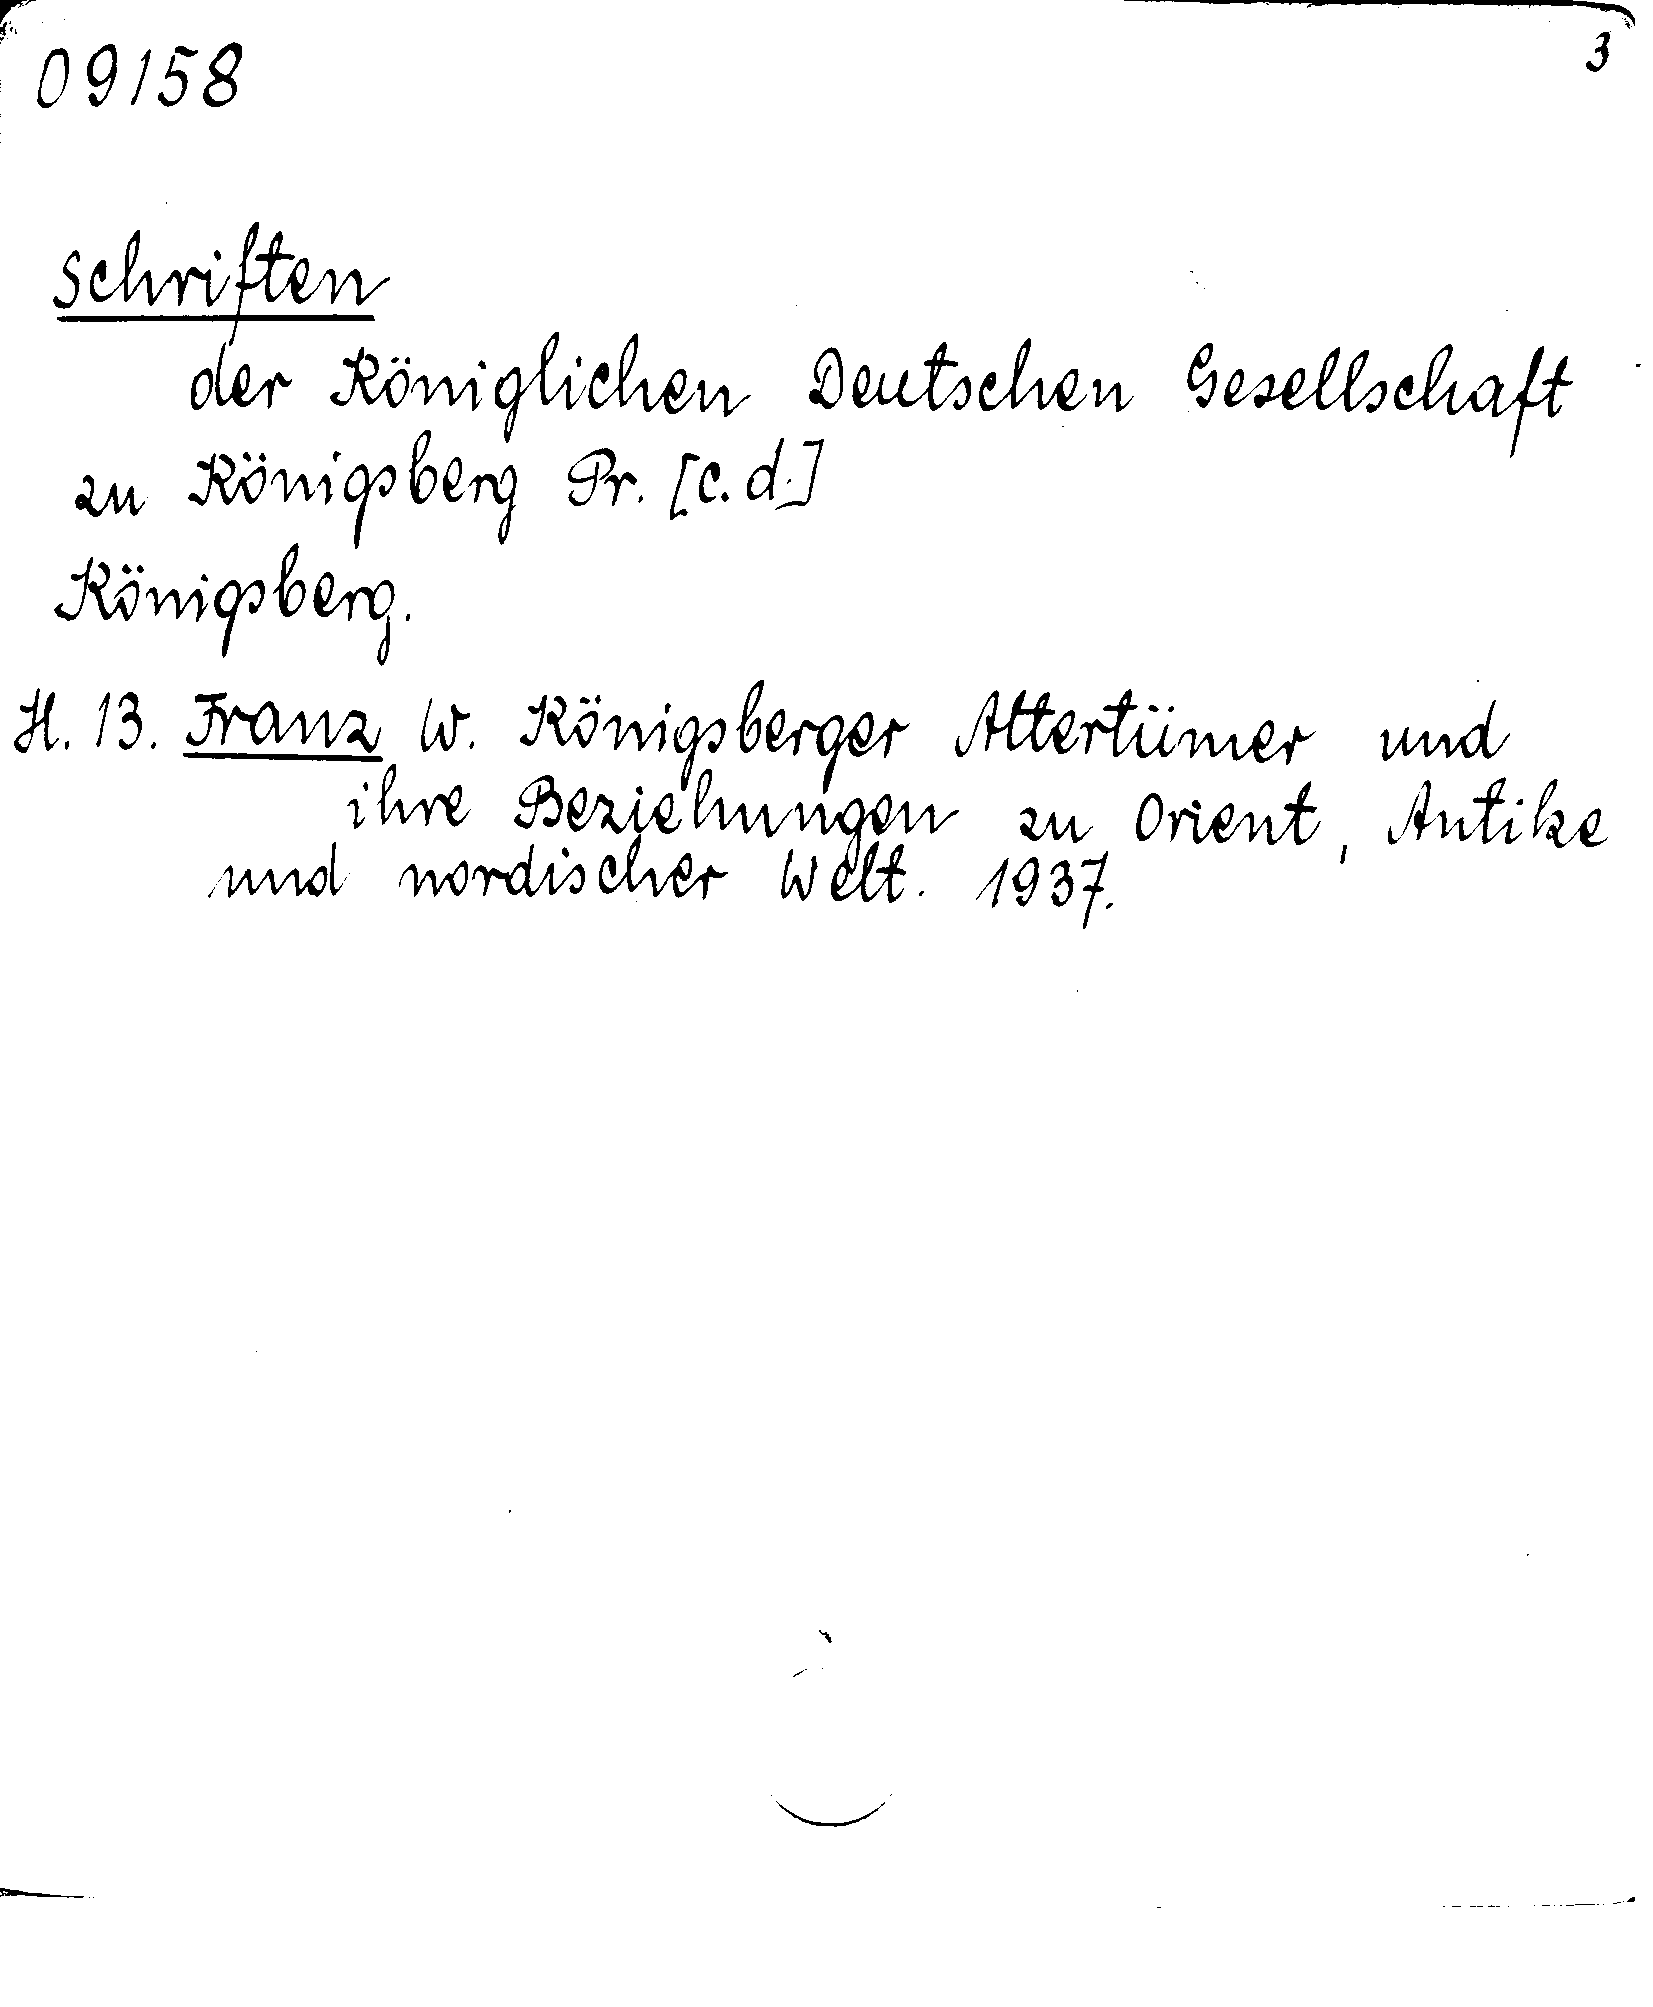 09158
3
Schriften
der Königlichen Deutschen Gesellschaft
zu Königsberg Pr. [c.d.]
Königsberg.
H. 13. Franz W. Königsberger Altertümer und
ihre Beziehungen zu Orient, Antike
und nordischer Welt. 1937.